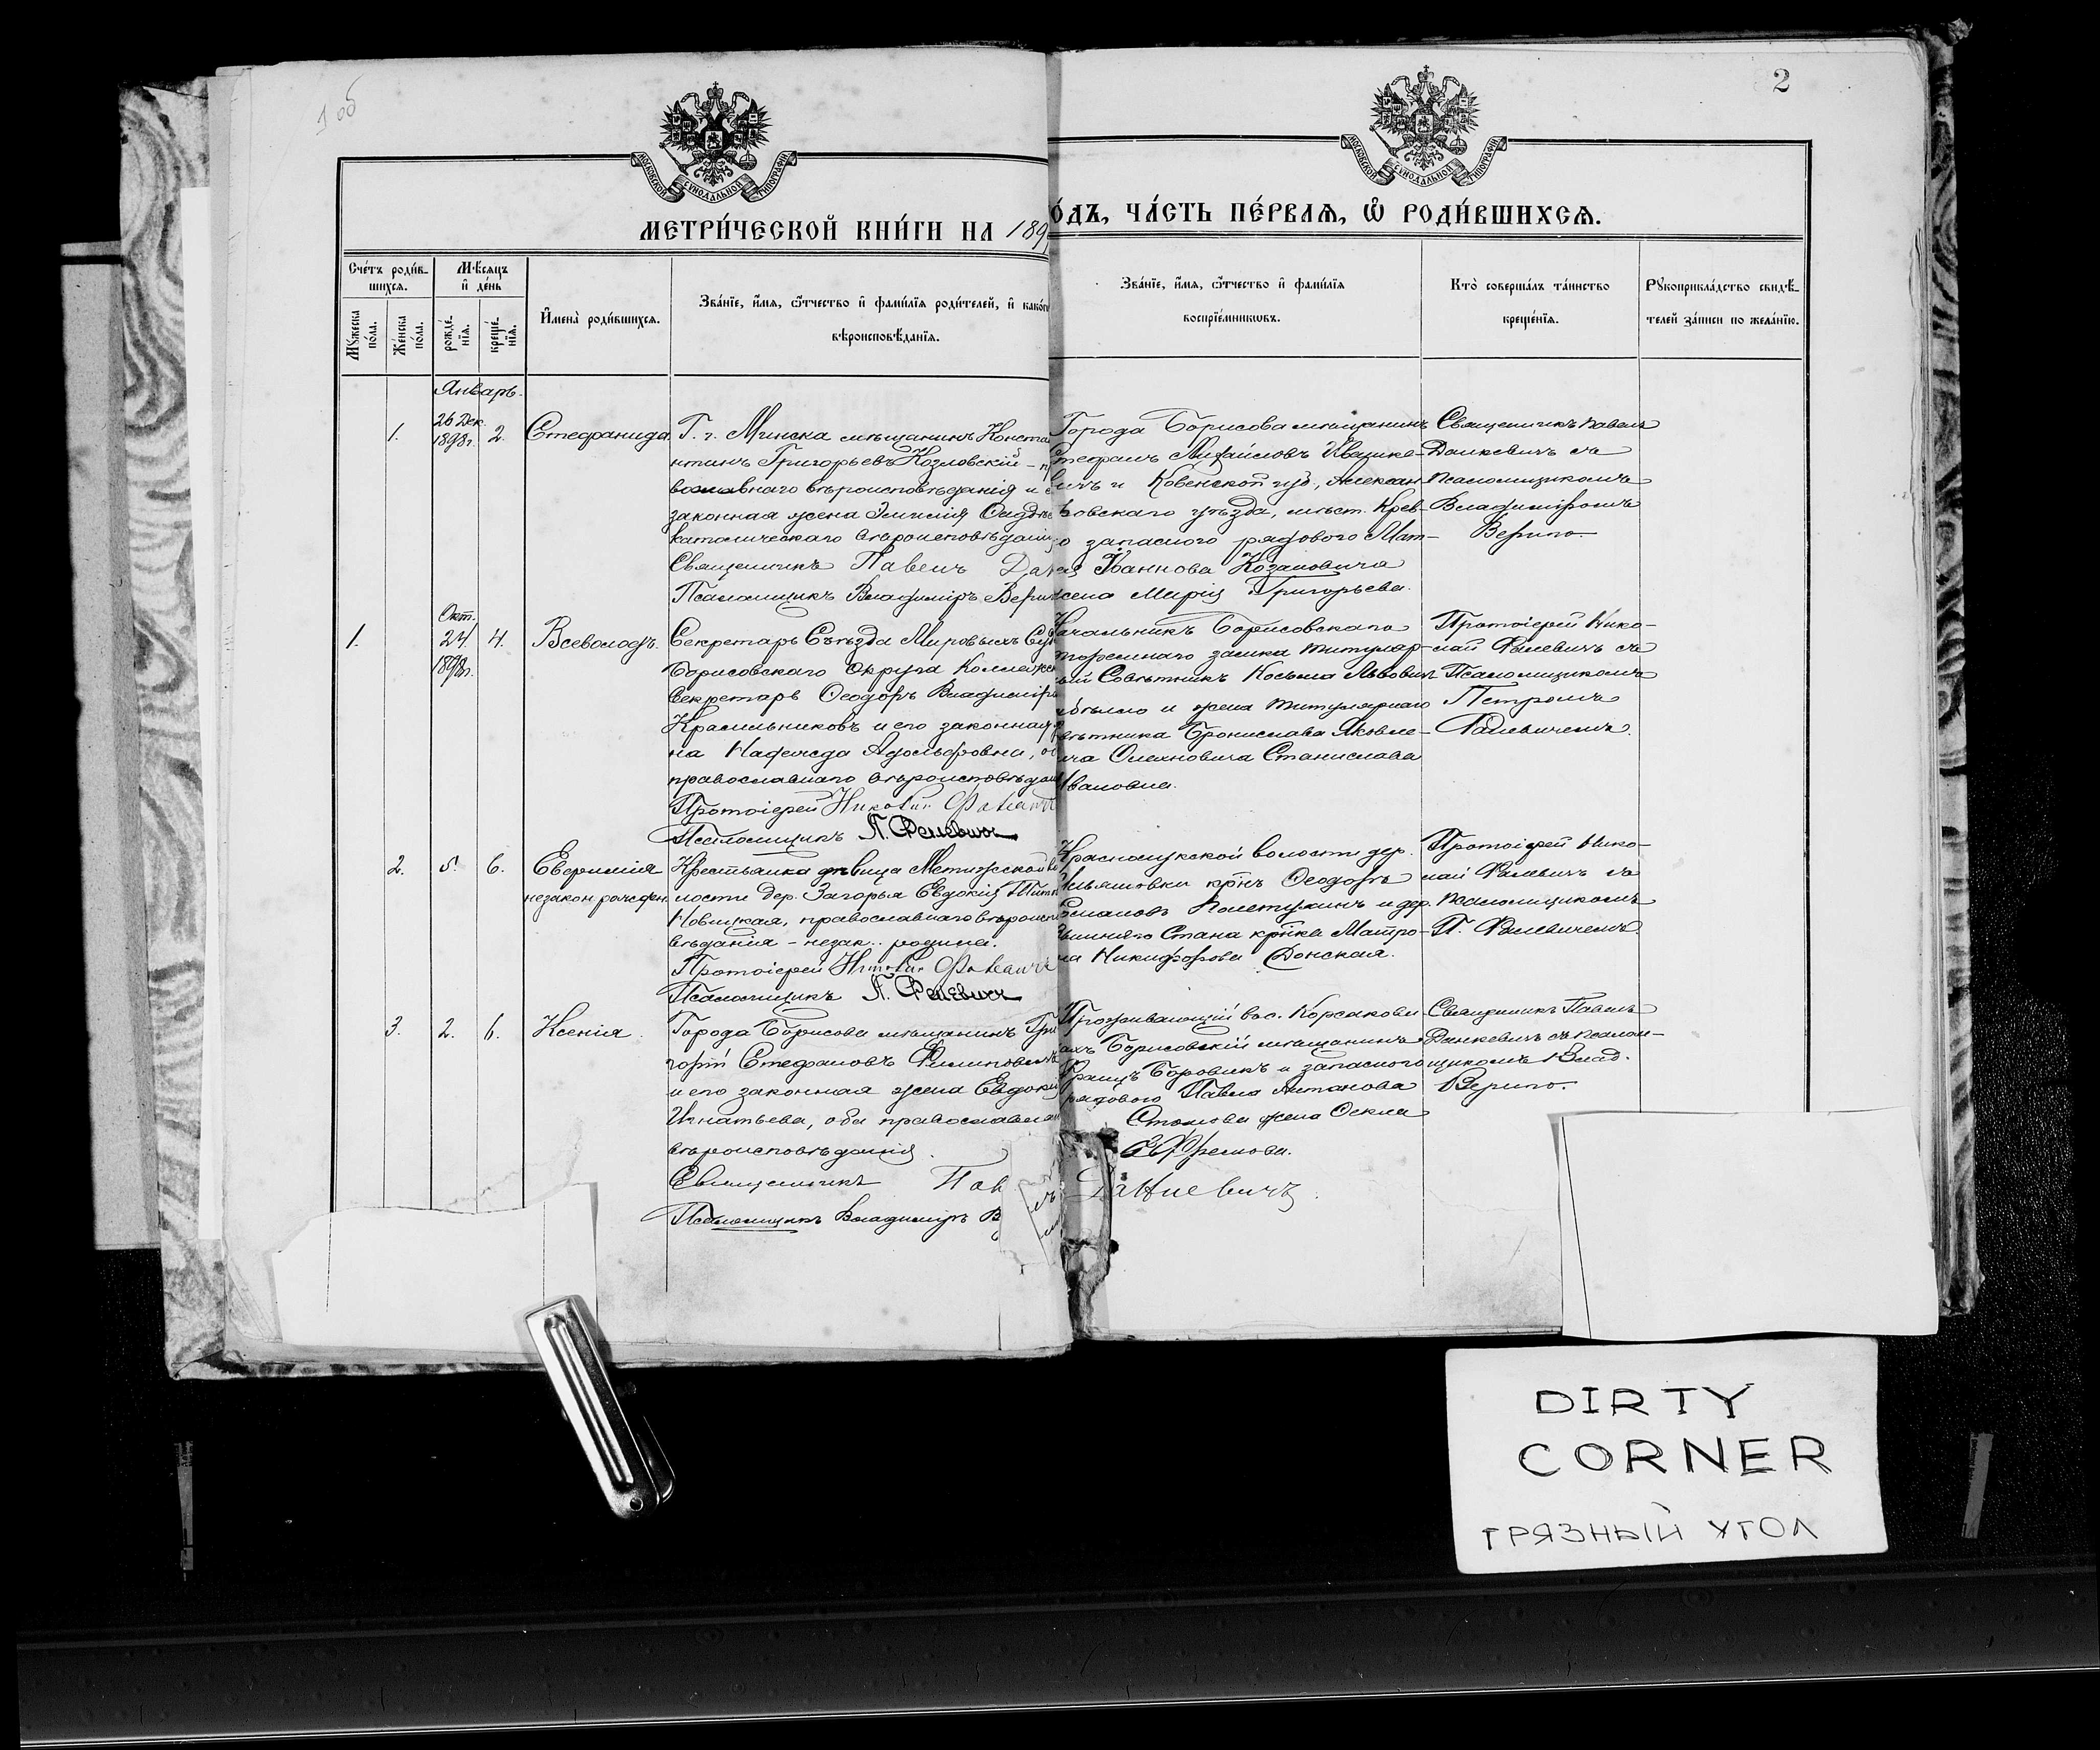 1 об
2
МОСКОВСКОЙ СѴНОДАЛЬНОЙ ТИПОГРАФІИ
МОСКОВСКОЙ СѴНОДАЛЬНОЙ ТИПОГРАФІИ
МЕТРИ́ЧЕСКОЙ КНИ́ГИ НА 189
О́ДЪ, ЧА́СТЬ ПЕ́РВАѦ, Ѽ РОДИ́ВШИХСѦ.
Сче́тъ роди́в-
шихся.
Мꙋ́жеска по́ла.
Же́нска по́ла.
Мѣ́сяцъ
и де́нь
рожде́-
нїя.
креще́-
нїя.
Имена̀ роди́вшихся.
Зва́нїе, и́мя, ѻ҆́тчество и фами́лїя роди́телей, и како́г
вѣроисповѣ́данїя.
Зва́нїе, и́мя, ѻ҆́тчество и фами́лїя
воспрїе́мниковъ.
Кто̀ соверша́лъ та́инство
креще́нїя.
Рꙋкоприкла́дство свидѣ́-
телей за́писи по жела́нїю.
Январь.
1.
26 Дек.
1898 г.
2.
Стефанида.
Г. г. Минска мѣщанинъ Конста
нтинъ Григорьевъ Козловскій - п
вославнаго вѣроисповѣданія и
законная жена Эмилія
католическаго вѣроисповѣдані
Священникъ Павелъ Да
Псаломщикъ Владиміръ Вери
Города Борисова мѣщанинъ
тефанъ Михайловъ Ивашке-
вичъ и Ковенской губ., Алексан
ровскаго уѣзда, мѣст. Крев-
о запаснаго рядового Мат-
ѳея Іоаннова Козановича
жена Марія Григорьева.
Священникъ Павелъ
Данкевичъ съ
псаломщикомъ
Владиміромъ
Верито
1.
Окт.
24.
1898г.
4.
Всеволодъ.
Секретарь Съѣзда Мировыхъ Су
Борисовскаго Округа Коллежск
Секретарь Ѳеодоръ Владимір
Красильниковъ и его законная
на Надежда Адольфовна, о
православнаго вѣроисповѣдан
Протоіерей Николай Фалевичъ
Псаломщикъ П. Фалевичъ
Начальникъ Борисовскаго
тюремнаго замка титуляр-
ный Совѣтникъ Косьма Львович
и жена титулярнаго
вѣтника Бронислава Яковле-
вича Олехновича Станислава
Ивановна.
Протоіерей Нико-
лай Фалевичъ съ
Псаломщикомъ
Петромъ
Фалевичемъ.
2.
5.
6.
Евфимія
незаконрожден.
Крестьянка дѣвица Метижской во
лости дер. Загорья Евдокія Тит
Новицкая, православнаго вѣроисп
вѣданія - незак. родила.
Протоіерей Николай Фалевичъ
Псаломщикъ П. Фалевичъ
Краснолукской волости дер.
Ильяновки кр҃нъ Ѳеодоръ
Романовъ и дер.
Стана кр҃нка Матро-
на Никифорова Донская.
Протоіерей Нико-
лай Фалевичъ съ
псаломщикомъ
П. Фалевичемъ
3.
2.
6.
Ксенія.
Города Борисова мѣщанинъ Гри
горій Стефановъ Филиповичъ
и его законная жена Евдоки
Игнатьева, оба православна
вѣроисповѣданія.
Священникъ Пав
Псаломщикъ Владиміръ В
Проживающій въ с. Корсакови-
ахъ Борисовскій мѣщанинъ
Францъ Боровикъ и запаснаго
рядового Павла Антонова
жена Ѳекла
Ефремова.
Данкевичъ
Священникъ Павелъ
Данкевичъ съ псалом-
щикомъ Влад.
Верито.
DIRTY
CORNER
ГРЯЗНЫЙ УГОЛ